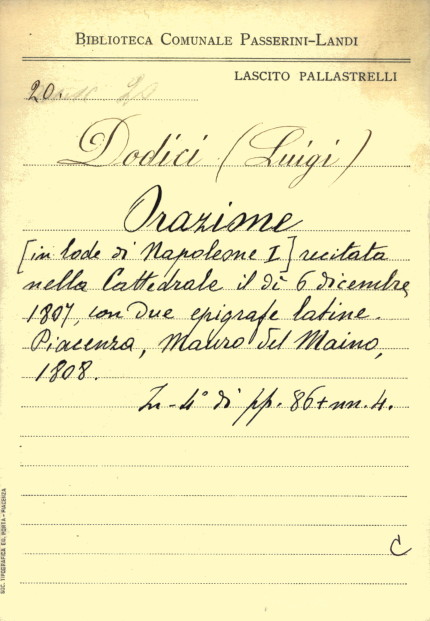 BIBLIOTECA COMUNALE PASSERINI-LANDI
LASCITO PALLASTRELLI
20.
Dodici (Luigi)
Orazione
[in lode di Napoleone I] recitata
nella Cattedrale il dì 6 dicembre
1807, con due epigrafe latine.
Piacenza, Mauro Del Maino,
1808.
In-4° di pp. 86+nn.4.
C
SOC. TIPOGRAFICA ED. PORTA - PIACENZA